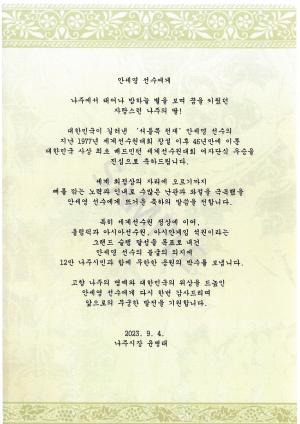 안세영 선수에게
나주에서 태어나 밤하늘 별을 보며 꿈을 키웠던
자랑스런 나주의 딸!
대한민국이 길러낸 '셔틀콕 천재' 안세영 선수의
지난 1977년 세계선수권대회 창설 이후 46년만에 이룬
대한민국 사상 최초 배드민턴 세계선수권대회 여자단식 우승을
진심으로 축하드립니다.
세계 최정상의 자리에 오르기까지
뼈를 깎는 노력과 인내로 수많은 난관과 좌절을 극복했을
안세영 선수에게 뜨거운 축하의 말씀을 전합니다.
특히 세계선수권 정상에 이어,
올림픽과 아시아선수권, 아시안게임 석권이라는
그랜드 슬램 달성을 목표로 내건
안세영 선수의 불굴의 의지에
12만 나주시민과 함께 무한한 응원의 박수를 보냅니다.
고향 나주의 명예와 대한민국의 위상을 드높인
안세영 선수에게 다시 한번 감사드리며
앞으로의 무궁한 발전을 기원합니다.
2023. 9. 4.
나주시장 윤병태